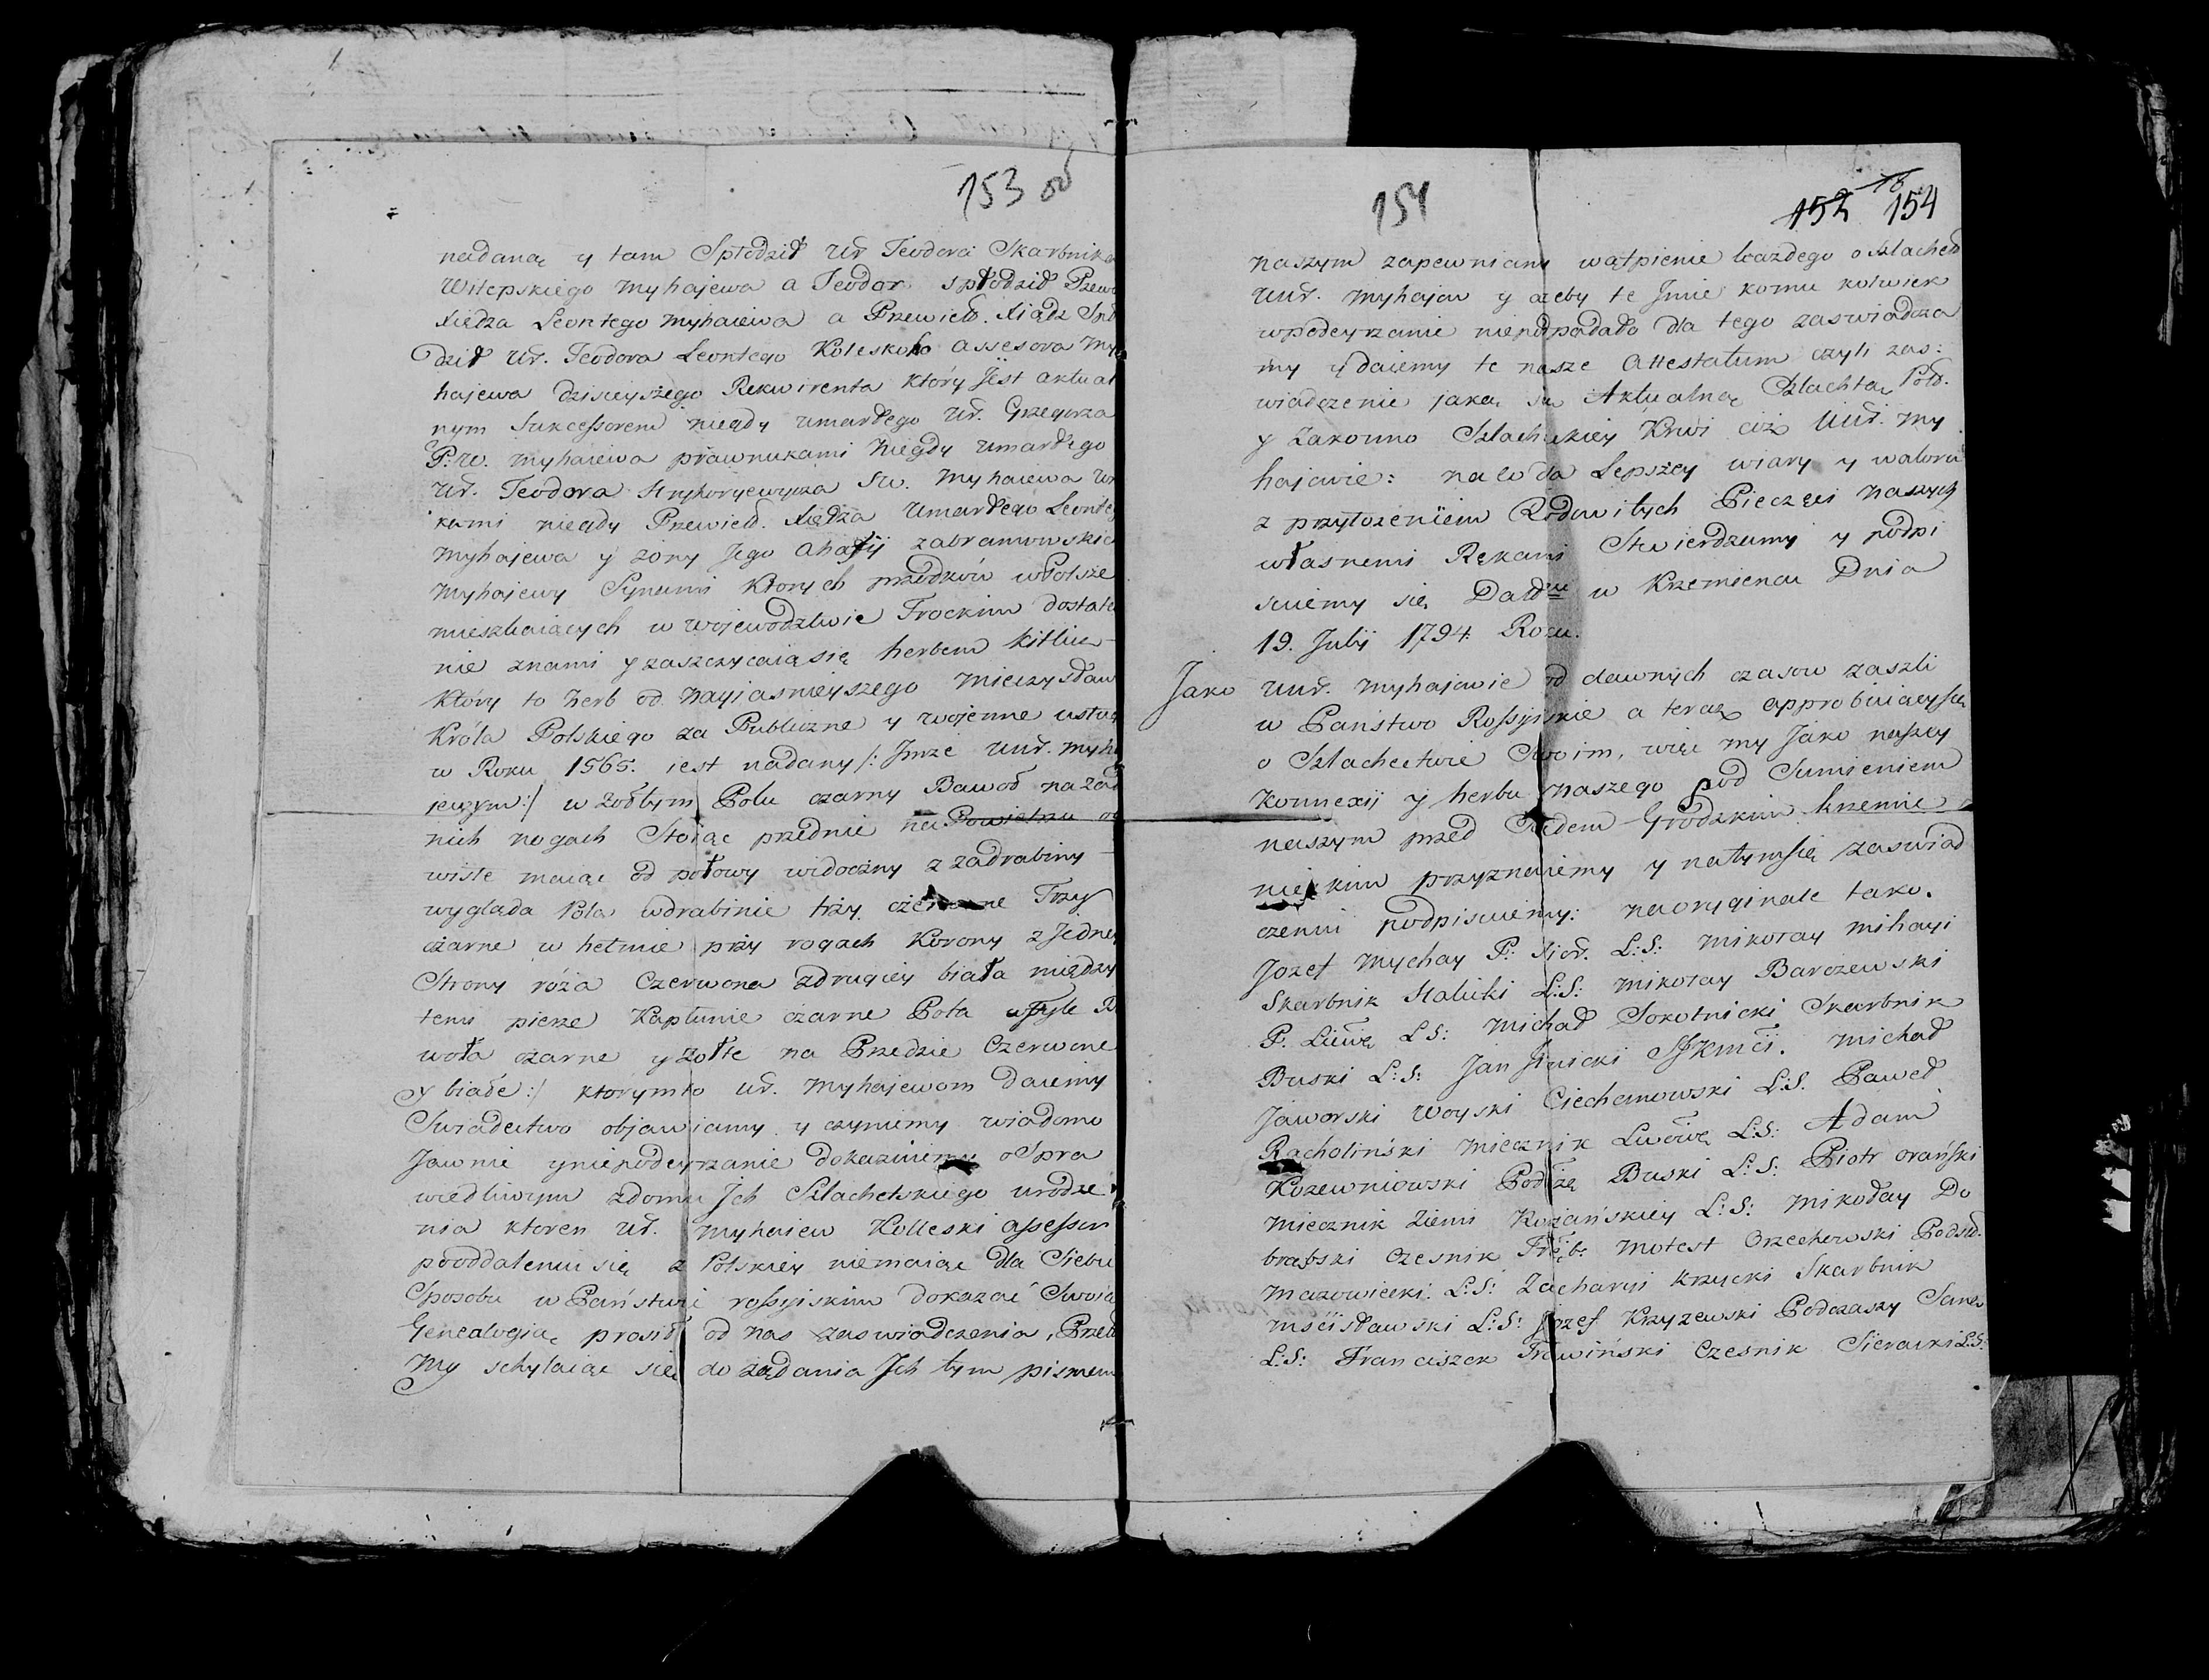 153 od
nadaną y tam Spłodził Ur Teodora Skarbnika
Witepskiego Myhajewa a Teodor spłodził Przew
Xiędza Leontego Myhaiewa a Przewieł. Xiądz Spło
dził Ur. Teodora Leontego Kolesko assesora My
hajewa dzisieyszego Rekwirenta który Jest aktual
nym Sukcessorem niegdy umarłego Ur. Grzegorza
P: w. Myhaiewa prawnukami niegdy umarłego
Ur. Teodora Hryhoryewycza Sw. Myhaiewa Wn
kami niegdy Przewieł. Xiędza Umarłego Leonteg
Myhajewa y żony Jego Ahafij zabramowskie
Myhajewy Synami Których przodków w Polsze
mieszkaiących w wojewodztwie Trockim dostate
nie znami y zaszczycaią się herbem kitliu
Który to herb od nayiasnieyszego Mieczysław
Króla Polskiego za Publiczne y wojenne usług
w Roku 1565. iest nadany /: Jmże Uur. Myha
jewym :/ w żołtym Polu czarny Bawoł na zad
nich nogach Stoiąc przednie na Powietrzu o
wiste maiąc od połowy widoczny z zadrabiny
wyglada Pola wdrabinie trzy Trzy
czarne w hełmie przy rogach Korony z Jedney
Strony róża Czerwona zdrugiey biała między
temi pierze Kapłunie czarne Pola w tyle B
woła czarne y żołte na Przedzie Czerwone
y białe :/ którymto ur. Myhajewom Daiemy
Swiadectwo objawiamy y czyniemy wiadomo
Jawnie y niepodeyrzanie dokazuiemy o Spra
wiedliwym zdomu Jch Szlachetskiego urodze
nia ktoren ur. Myhaiew Kolleski assessor
pooddaleniu się z Polskiey niemaiąc dla Siebie
Sposobu w Państwie rossyiskim dokazać Swoią
Genealogią prosił od nas zaswiadczenia, Przeto
My schylaiąc się do żądania Jch tym pismem
154
152 154
naszym zapewniamy wątpienie każdego o szlachet
Uur. Myhajew y ażeby te Jmie komu kolwiek
wpodeyrzanie niepodpadało dla tego zaswiadcza
my y daiemy te nasze Attestatum czyli zas:
wiadczenie jako są Aktualną Szlachtą Pols.
y Zakonno Szlachckiey Krwi ciż Uur. My
hajewie: na co dla Lepszey wiary y waloru
z przyłożeniem Rodowitych Pieczęci naszych
własnemi Rękami Stwierdzamy y podpi
suiemy się. Datt w Krzemiencu Dnia
19. Julij 1794. Roku.
Jako Uur. Myhajewie od dawnych czasow zaszli
w Państwo Rossyjskie a teraz approbuiąsię
o Szlachectwie Swoim, więc my Jako naszey
Konnexij y herbu naszego pod Sumieniem
naszym przed Sądem Grodzkim krzemie
nieckim przyznaiemy y natymsię zaswiad
czeniu podpisuiemy: na oryginale tako.
Jozef Mychay P: L:S: Mikołay Mihayi
Skarbnik Halicki L:S: Mikołay Barczewski
P. L:S: Michał Sokolnicki Skarbnik
Buski L:S: Jan Jlnicki Michał
Jaworski Woyski Ciechanowski L:S. Paweł
Racholiński Miecznik L:S: Adam
Kozewniowski Buski L:S: Piotr orański
Miecznik Ziemi Rożańskiey L:S: Mikołay Do
brąbski Czesnik Motest Orzechowski Podsto.
Mazowiecki. L:S: Zacharyi Krzycki Skarbnik
Mścisławski L:S: Jozef Krzyżewski Podczaszy Sano
L:S: Franciszek Trawiński Czesnik Sieracki L:S: